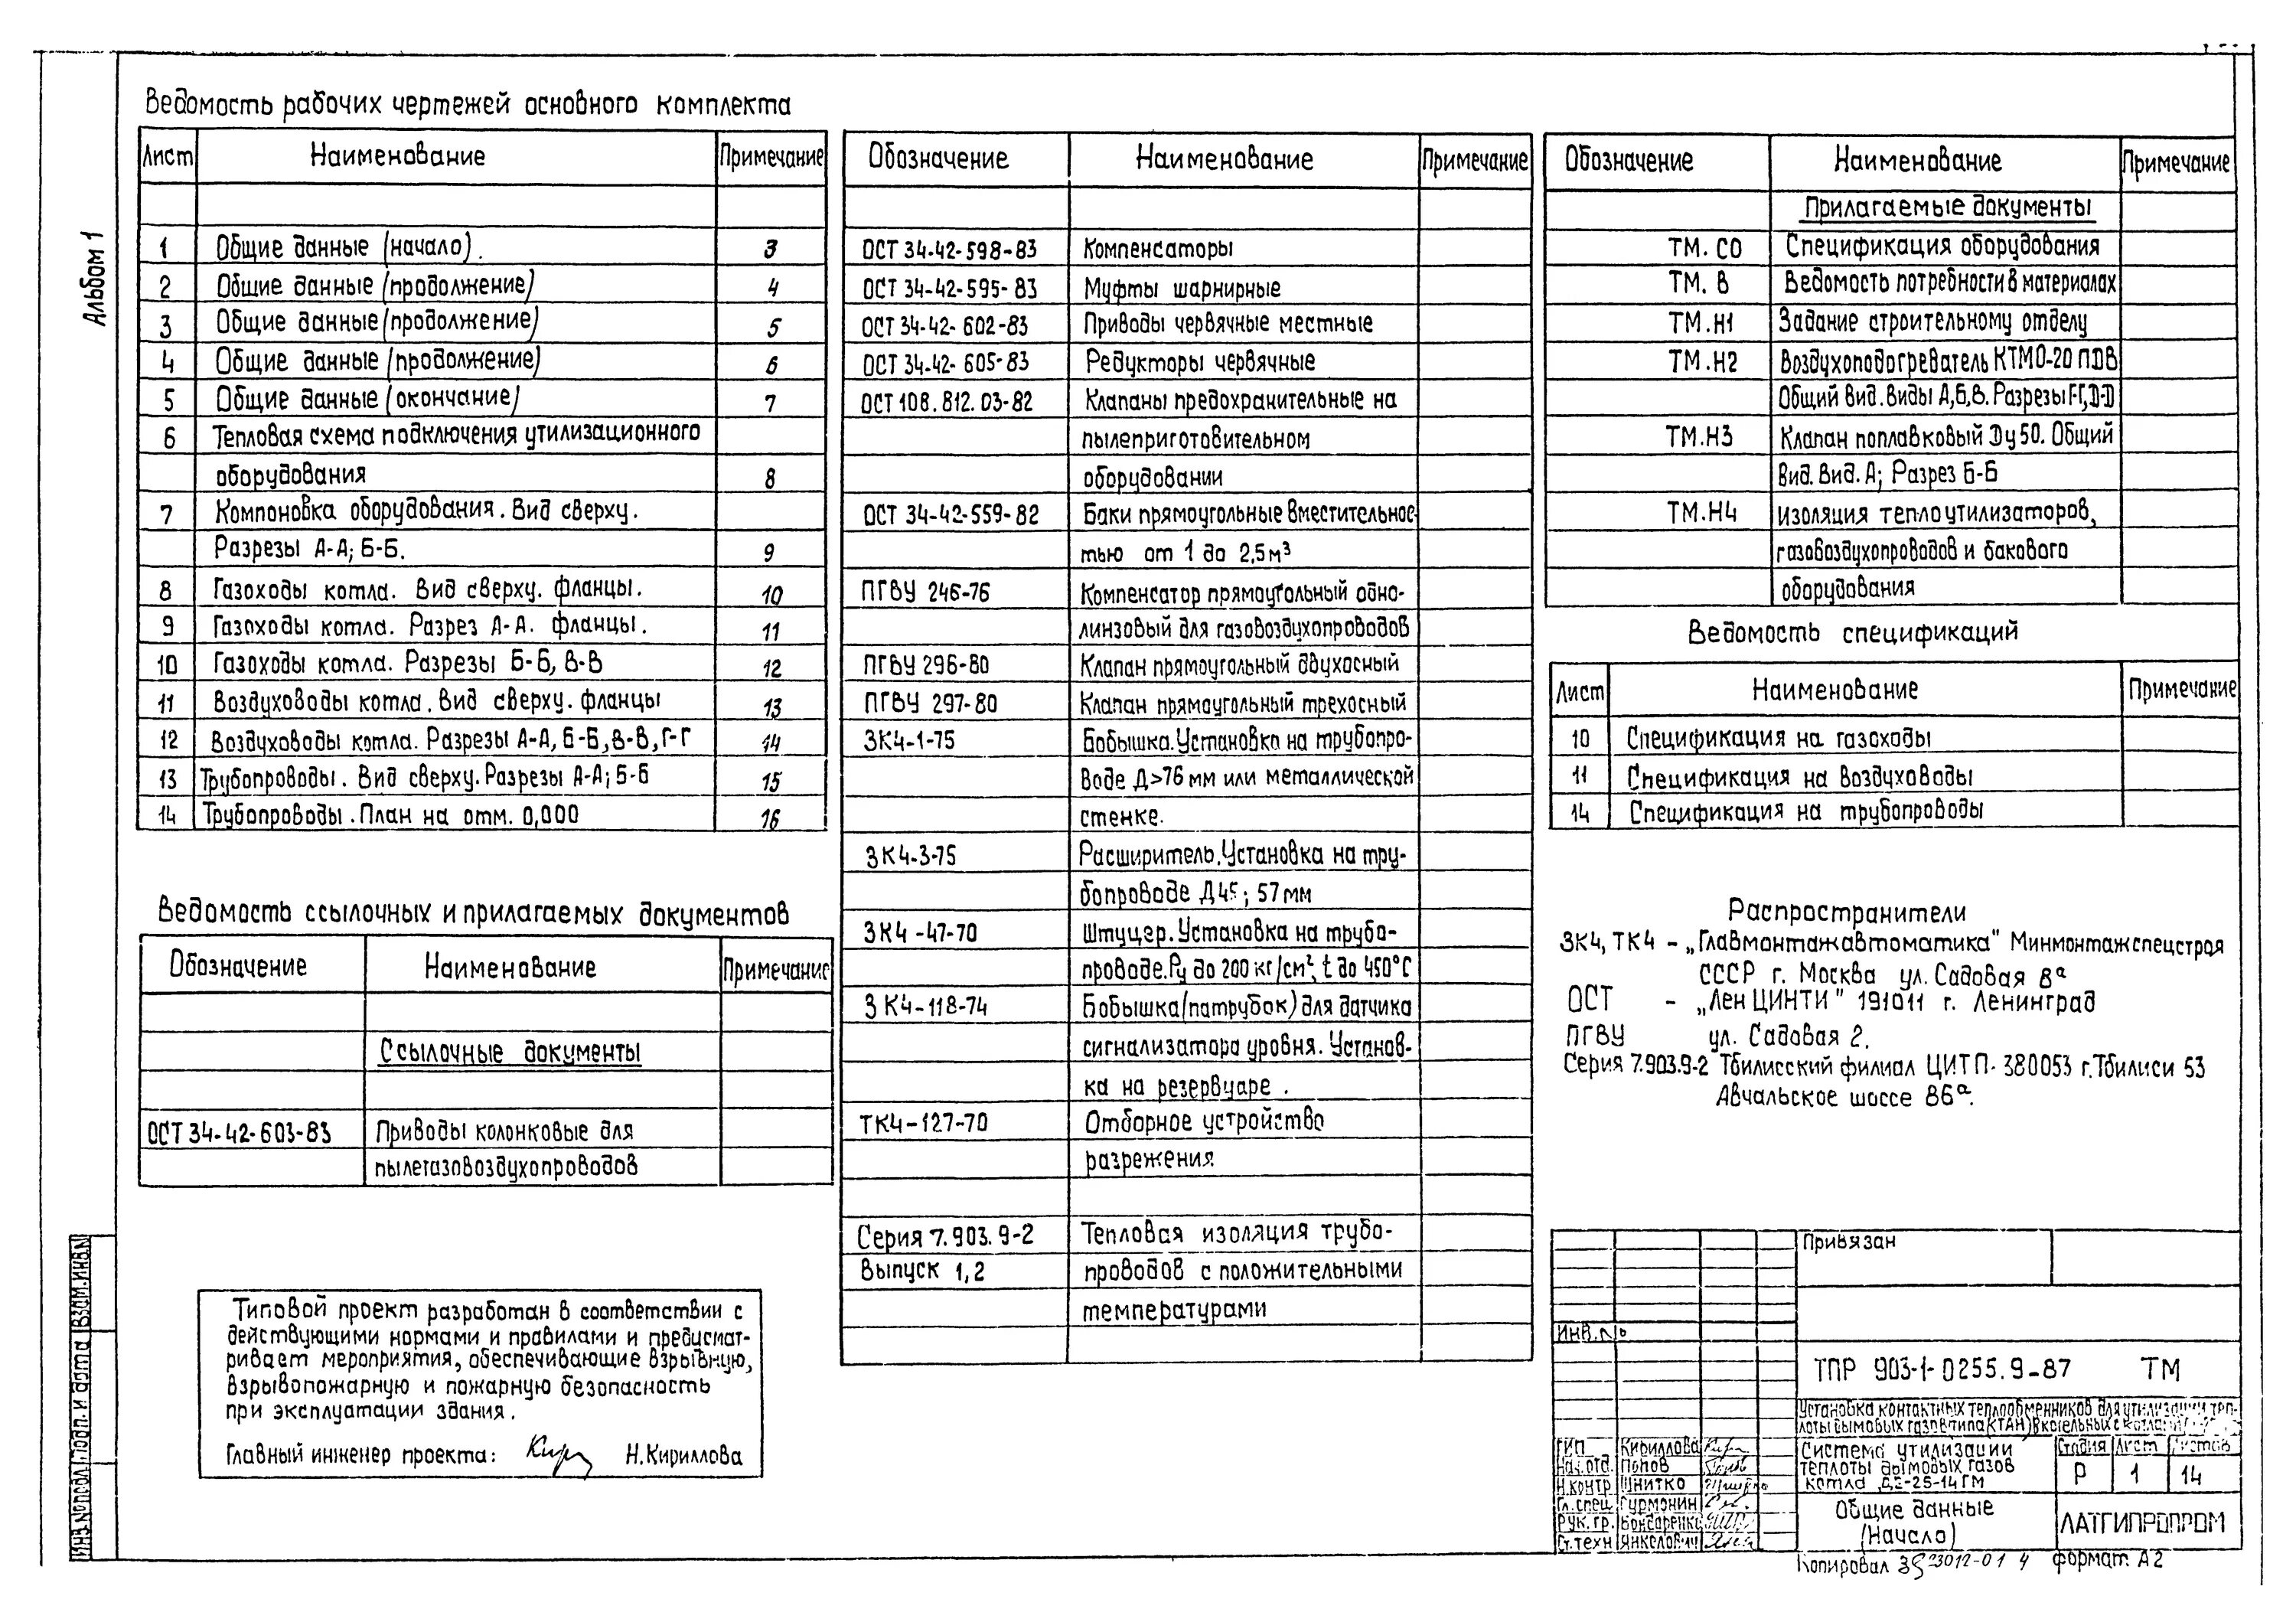 Альбом 1
Ведомость рабочих чертежей основного комплекта
Лист Наименование Примечание
1 Общие данные (начало). 3
2 Общие данные (продолжение) 4
3 Общие данные (продолжение) 5
4 Общие данные (продолжение) 6
5 Общие данные (окончание) 7
6 Тепловая схема подключения утилизационного
оборудования 8
7 Компоновка оборудования. Вид сверху.
Разрезы А-А; Б-Б. 9
8 Газоходы котла. Вид сверху. фланцы. 10
9 Газоходы котла. Разрез А-А. фланцы. 11
10 Газоходы котла. Разрезы Б-Б, В-В 12
11 Воздуховоды котла. Вид сверху. фланцы 13
12 Воздуховоды котла. Разрезы А-А, Б-Б, В-В, Г-Г 14
13 Трубопроводы. Вид сверху. Разрезы А-А; Б-Б 15
14 Трубопроводы. План на отм. 0,000 16
Ведомость ссылочных и прилагаемых документов
Обозначение Наименование Примечание
Ссылочные документы
ОСТ 34-42-603-83 Приводы колонковые для
пылегазовоздухопроводов
Типовой проект разработан в соответствии с
действующими нормами и правилами и предусмат-
ривает мероприятия, обеспечивающие взрывную,
взрывопожарную и пожарную безопасность
при эксплуатации здания.
Главный инженер проекта: Н. Кириллова
Обозначение Наименование Примечание
ОСТ 34-42-598-83 Компенсаторы
ОСТ 34-42-595-83 Муфты шарнирные
ОСТ 34-42-602-83 Приводы червячные местные
ОСТ 34-42-605-83 Редукторы червячные
ОСТ 108.812.03-82 Клапаны предохранительные на
пылеприготовительном
оборудовании
ОСТ 34-42-559-82 Баки прямоугольные вместительнос-
тью от 1 до 2,5м³
ПГВУ 246-76 Компенсатор прямоугольный одно-
линзовый для газовоздухопроводов
ПГВУ 296-80 Клапан прямоугольный двухосный
ПГВУ 297-80 Клапан прямоугольный трехосный
ЗК4-1-75 Бобышка. Установка на трубопро-
воде Д>76 мм или металлической
стенке.
ЗК4-3-75 Расширитель. Установка на тру-
бопроводе Д45; 57 мм
ЗК4-47-70 Штуцер. Установка на трубо-
проводе. Ру до 200 кг/см², t до 450°С
ЗК4-118-74 Бобышка (патрубок) для датчика
сигнализатора уровня. Установ-
ка на резервуаре.
ТК4-127-70 Отборное устройство
разрежения
Серия 7.903.9-2 Тепловая изоляция трубо-
Выпуск 1,2 проводов с положительными
температурами
Обозначение Наименование Примечание
Прилагаемые документы
ТМ.СО Спецификация оборудования
ТМ.В Ведомость потребности в материалах
ТМ.Н1 Задание строительному отделу
ТМ.Н2 Воздухоподогреватель КТМО-20 ПДВ
Общий вид. Виды А, Б, В. Разрезы Г-Г, Д-Д
ТМ.Н3 Клапан поплавковый Ду 50. Общий
вид. Вид. А; Разрез Б-Б
ТМ.Н4 изоляция теплоутилизаторов,
газовоздухопроводов и бакового
оборудования
Ведомость спецификаций
Лист Наименование Примечание
10 Спецификация на газоходы
11 Спецификация на воздуховоды
14 Спецификация на трубопроводы
Распространители
ЗК4, ТК4 - „Главмонтажавтоматика" Минмонтажспецстроя
СССР г. Москва ул. Садовая 8ª
ОСТ - „ЛенЦИНТИ" 191011 г. Ленинград
ПГВУ ул. Садовая 2.
Серия 7.903.9-2 Тбилисский филиал ЦИТП- 380053 г. Тбилиси 53
Авчальское шоссе 86ª.
Привязан
ИНВ. №
ТПР 903-1-0255.9-87 ТМ
Установка контактных теплообменников для утилизации теп-
лоты дымовых газов типа (КТАН) в котельных с котлами
Система утилизации
теплоты дымовых газов
котла ДЕ-25-14ГМ
Стадия Лист Листов
Р 1 14
Общие данные
(Начало)
ЛАТГИПРОПРОМ
ГИП Кириллова
Нач. отд. Попов
Н.контр Шнитко
Гл. спец. Гурмонин
Рук. гр. Бондаренко
Ст. техн Янкелович
ИНВ. № подл. Подп. и дата Взам. инв. №
Копировал 23012-01 4 формат А2